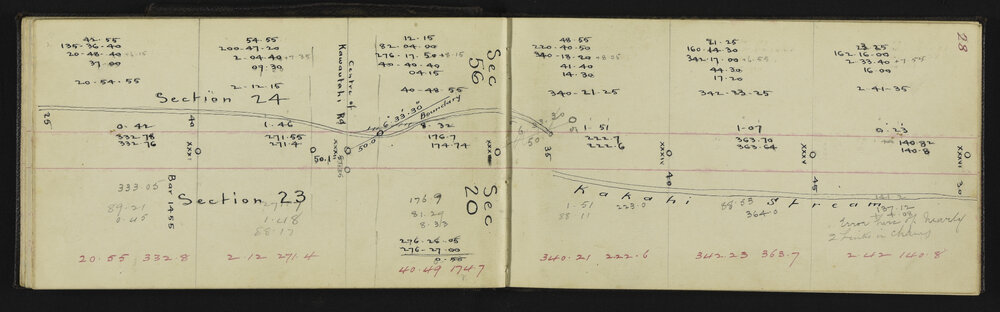 42-55
135-36-40
20-48-40 +6.15
37-00
20-54-55
54-55
200-47-20
2-04-40 +7.35
09-30
2-12-15
Centre of
Kawautahi Rd
12-15
82-04-00
276-17-50 +8.15
40-40-40
04-15
40-48-55
Sec
56
48-55
220-40-50
340-13-20 +8.05
41-40
14-30
340-21-25
21-25
160-44-30
342-17-00 +6.55
44-30
17-20
342-23-25
28
23-25
162-16-00
2-33-40 +7.55
16-00
2-41-35
Section 24
Boundary
6 33.30
25
40
50.0
35
0.42
332.78
332.76
XXXI
1.46
271.55
271.4
50.1
8.32
176.7
174.74
1.51
222.7
222.6
XXXIV
1.07
363.70
363.64
XXXV
0.23
140.82
140.8
XXXVI
Bar 1455
Section 23
Sec
20
40
45
30
Kakahi Stream
333.05
89.21
0.45
1.48
88.17
176.9
81.29
8.33
276-26-05
276-27-00
0-55
1.51
88.11
223.0
88.53
364.0
141.2
137.12
Error here of nearly
2 links in chaing
20.55 332.8
2.12 271.4
40.49 174.7
340.21 222.6
342.23 363.7
2.42 140.8